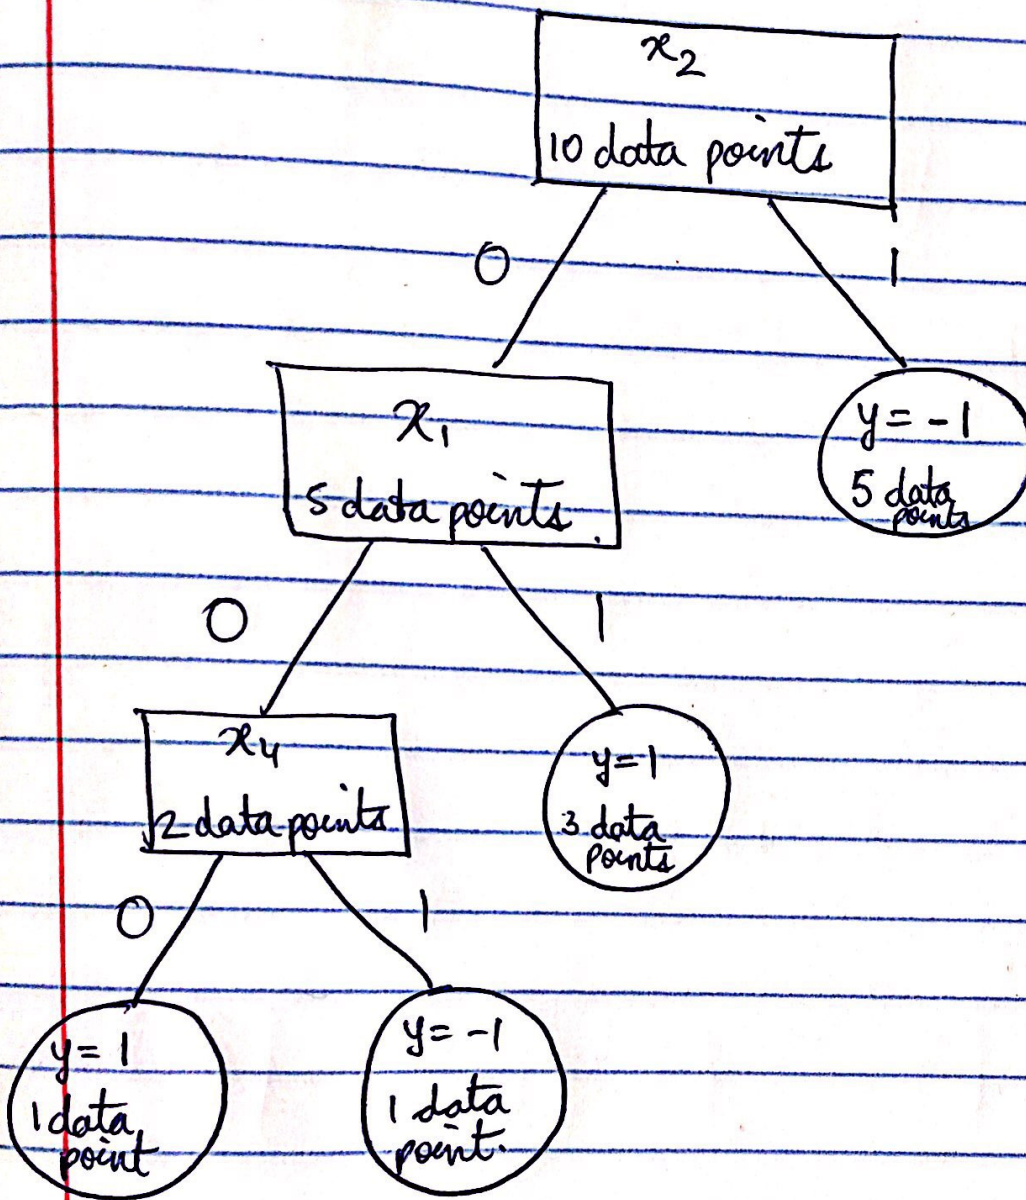 x₂
10 data points
0
1
x₁
5 data points.
y = -1
5 data
points
0
1
x₄
2 data points
y=1
3 data
points
0
1
y = 1
1 data
point
y = -1
1 data
point.